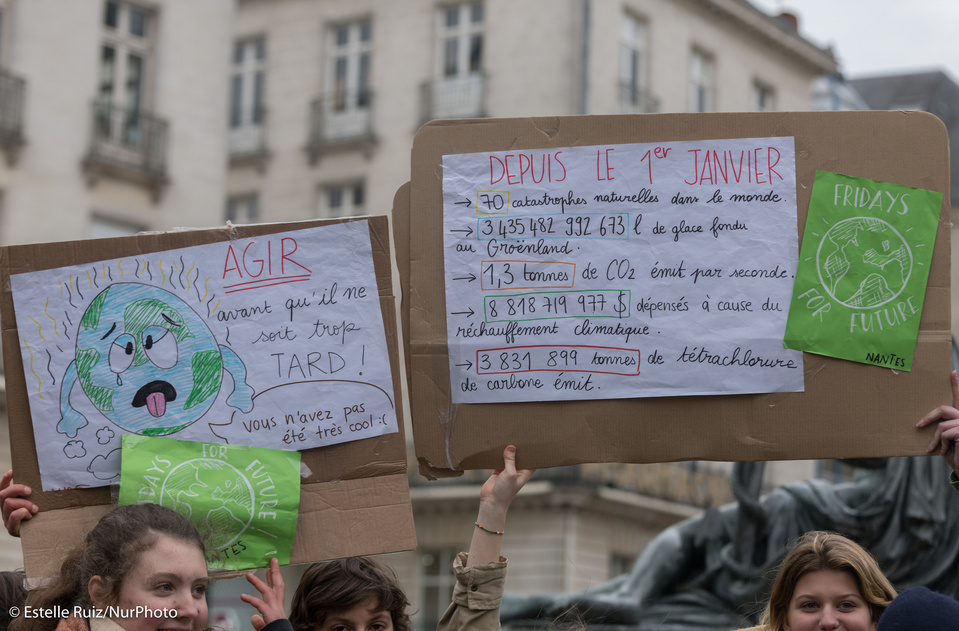 AGIR
avant qu'il ne
soit trop
TARD !
Vous n'avez pas
été très cool :(
FRIDAYS FOR FUTURE !
NANTES
DEPUIS LE 1er JANVIER
→ 70 catastrophes naturelles dans le monde.
→ 3 435 482 992 673 l de glace fondu
au Groënland.
→ 1,3 tonnes de CO2 émit par seconde.
→ 8 818 719 977 $ dépensés à cause du
réchauffement climatique.
→ 3 831 899 tonnes de tétrachlorure
de carbone émit.
FRIDAYS
FOR FUTURE
NANTES
© Estelle Ruiz/NurPhoto